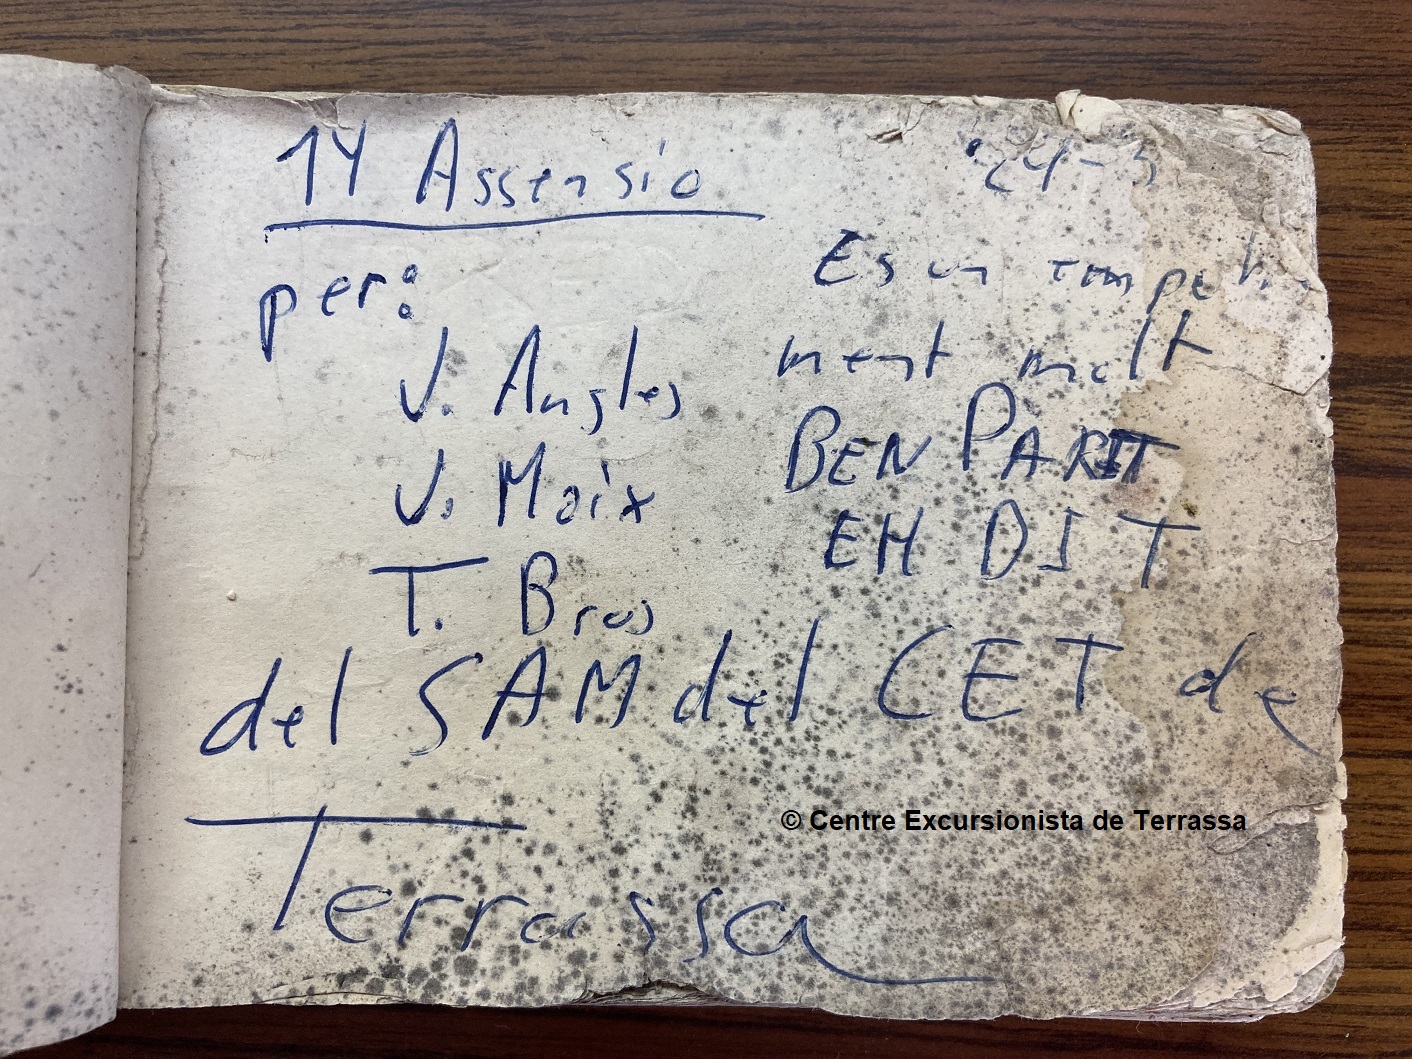 14 Assensio
per:
J. Angles
J. Moix
T. Bros
24-5
Es un
ment molt
BEN PARIT
EH DIT
del SAM del CET de
Terrassa
© Centre Excursionista de Terrassa